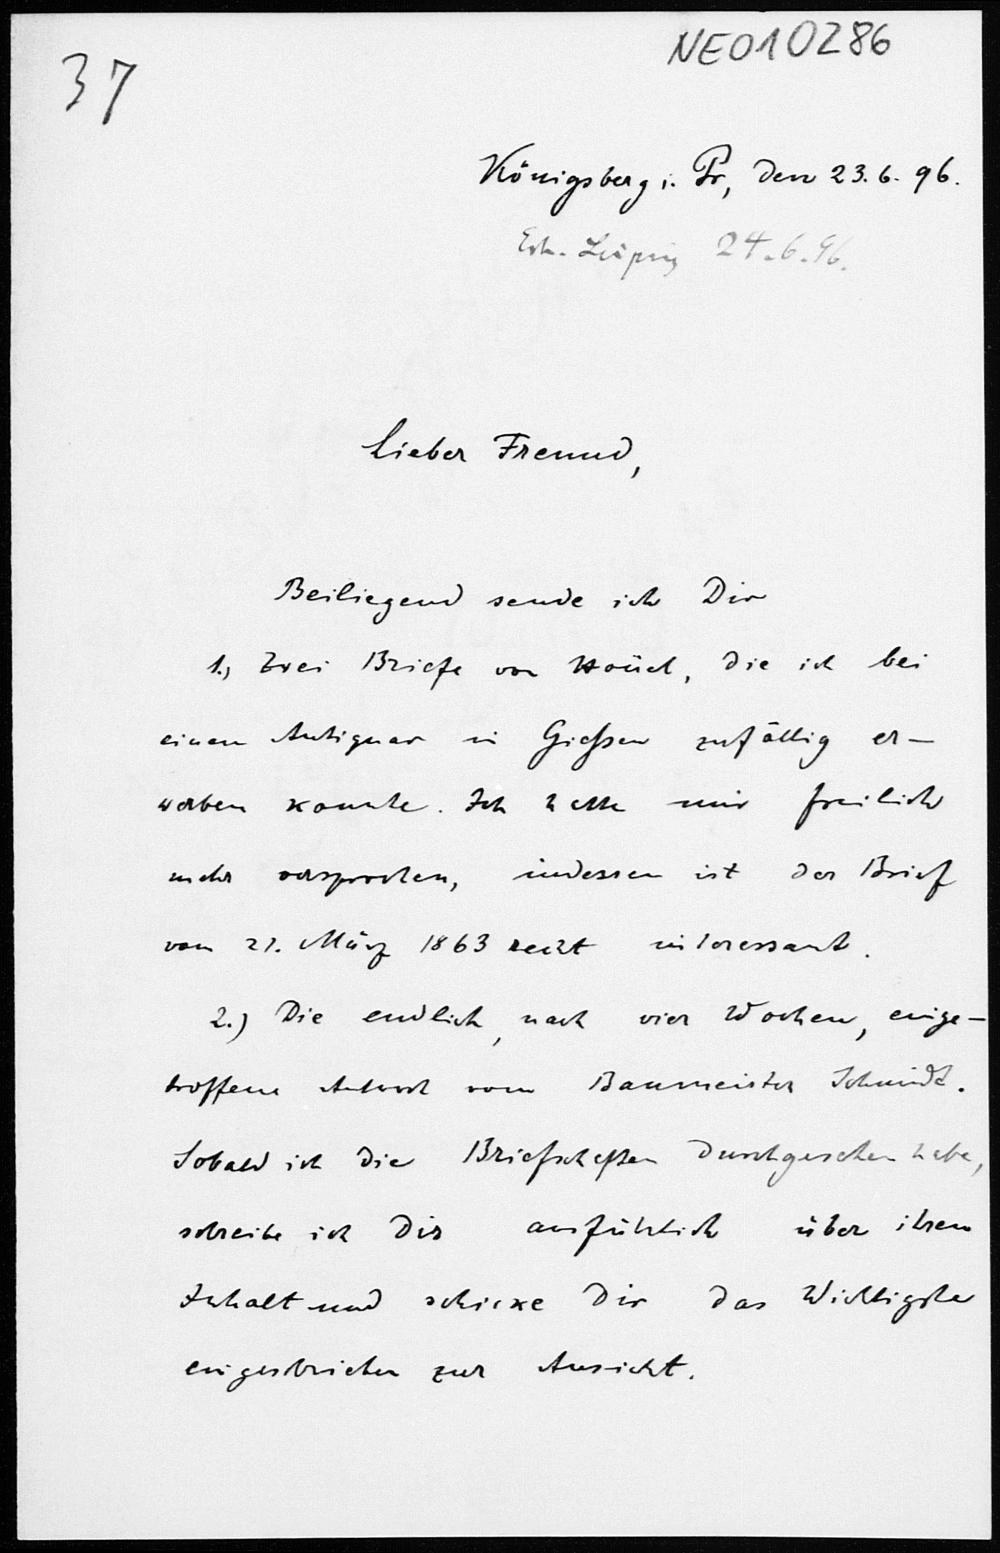 37
NE010286
Königsberg i. Pr, den 23.6.96.
Erh. Leipzig 24.6.96.
Lieber Freund,
Beiliegend sende ich Dir
1.) Zwei Briefe von Hoüel, die ich bei
einem Antiquar in Gießen zufällig er-
werben konnte. Ich hatte mir freilich
mehr versprochen, indessen ist der Brief
vom 21. März 1863 recht interessant.
2.) Die endlich, nach vier Wochen, einge-
troffene Antwort vom Baumeister Schmidt.
Sobald ich die Briefschaften durchgesehen habe,
schreibe ich Dir ausführlich über ihren
Inhalt und schicke Dir das Wichtigste
eingeschrieben zur Ansicht.